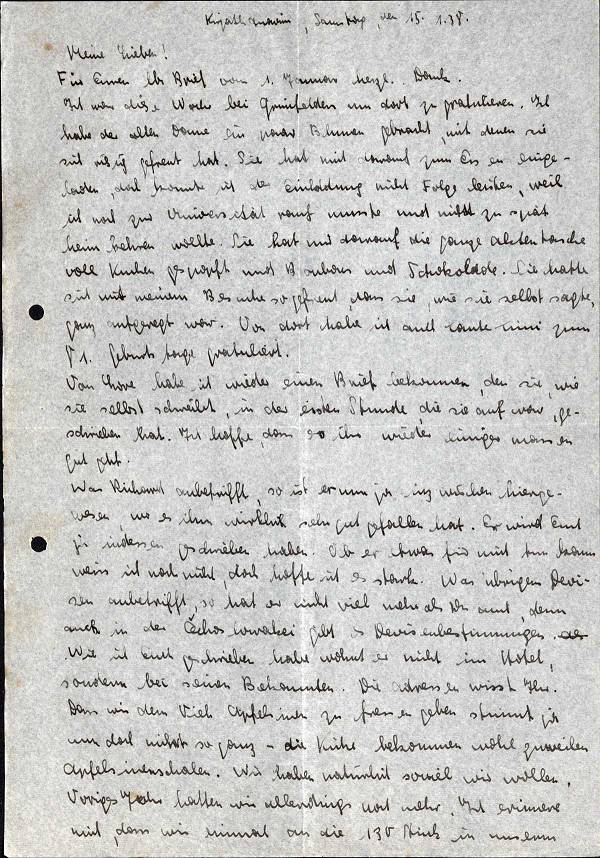 Kirjath Anavim, Samstag, den 15. 1.38.
Meine Lieben!
Für Euren lb Brief vom 1. Januar herzl. Dank.
Ich war diese Woche bei Grünfelders um dort zu gratulieren. Ich
habe der alten Dame ein paar Blumen gebracht, mit denen sie
sich riesig gefreut hat. Sie hat mich darauf zum Essen einge-
laden, doch konnte ich der Einladung nicht Folge leisten, weil
ich noch zur Universität rauf musste und nicht zu spät
heim kehren wollte. Sie hat mir darauf die ganze Aktentasche
voll Kuchen gestopft und Bonbons und Schokolade. Sie hatte
sich mit meinem Besuche so gefreut, dass sie, wie sie selbst sagte,
ganz aufgeregt war. Von dort habe ich auch Tante Mimi zum
71. Geburtstage gratuliert.
Von Lore habe ich wieder einen Brief bekommen, den sie, wie
sie selbst schreibt, in der ersten Stunde, die sie auf war, ge-
schrieben hat. Ich hoffe, dass es ihr wieder einigermassen
gut geht.
Was Richard anbetrifft, so ist er nun ja inzwischen hierge-
wesen, wo es ihm wirklich sehr gut gefallen hat. Er wird Euch
ja indessen geschrieben haben. Ob er etwas für mich tun kann
weiss ich noch nicht doch hoffe ich es stark. Was übrigens Devi-
sen anbetrifft, so hat er nicht viel mehr als Du auch, denn
auch in der Tschechoslowakei gibt es Devisenbestimmungen.
Wie ich euch geschrieben habe wohnt er nicht im Hotel,
sondern bei seinen Bekannten. Die Adressen wisst Ihr.
Dass wir dem Vieh Apfelsinen zu fressen geben stimmt ja
nun doch nicht so ganz - die Kühe bekommen wohl zuweilen
Apfelsinenschalen. Wir haben natürlich soviel wir wollen.
Voriges Jahr hatten wir allerdings noch mehr. Ich erinnere
mich, dass wir einmal an die 130 Stück in unserem